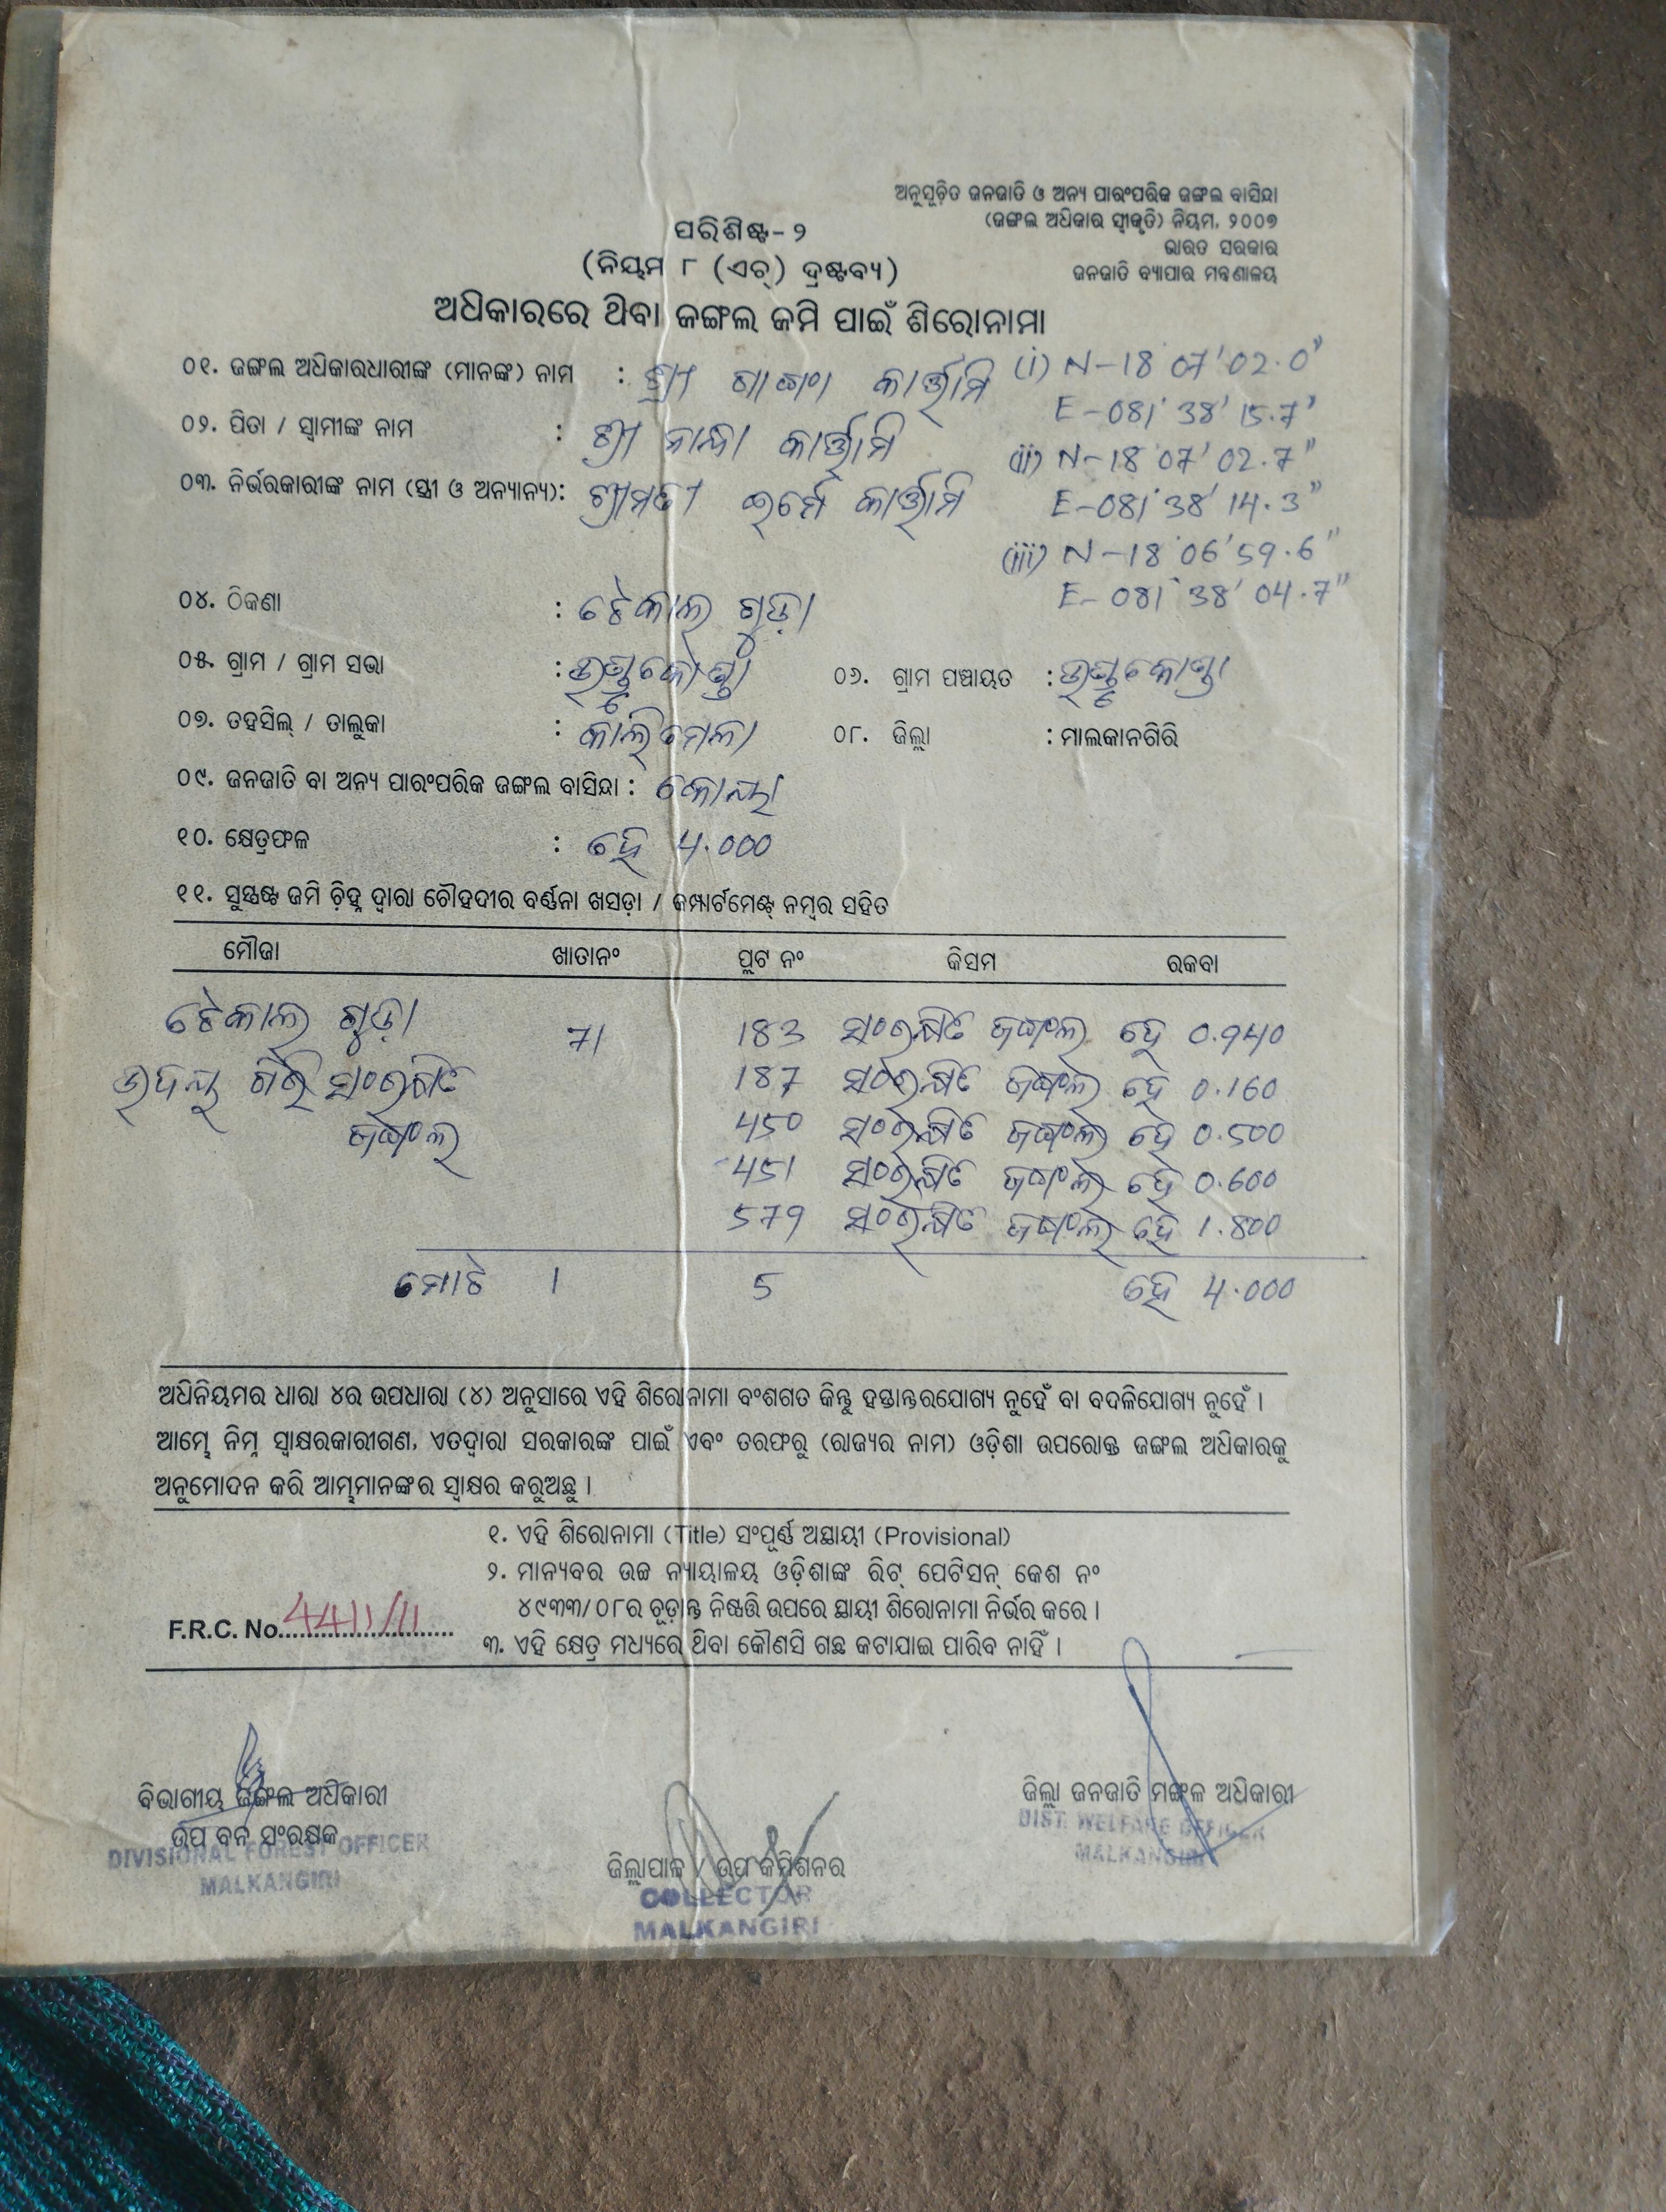 ଅନୁସୂଚିତ ଜନଜାତି ଓ ଅନ୍ୟ ପାରଂପରିକ ଜଙ୍ଗଲ ବାସିନ୍ଦା
(ଜଙ୍ଗଲ ଅଧିକାର ସ୍ୱୀକୃତି) ନିୟମ, ୨୦୦୭
ଭାରତ ସରକାର
ଜନଜାତି ବ୍ୟାପାର ମନ୍ତ୍ରଣାଳୟ
ପରିଶିଷ୍ଟ-୨
(ନିୟମ ୮ (ଏଚ୍) ଦ୍ରଷ୍ଟବ୍ୟ)
ଅଧିକାରରେ ଥିବା ଜଙ୍ଗଲ ଜମି ପାଇଁ ଶିରୋନାମା
୦୧. ଜଙ୍ଗଲ ଅଧିକାରଧାରୀଙ୍କ (ମାନଙ୍କ) ନାମ : ଶ୍ରୀ ଗାଙ୍ଗା କାର୍ତ୍ତାମି (i) N-18°07'02.0"
E-081°38'15.7"
୦୨. ପିତା / ସ୍ୱାମୀଙ୍କ ନାମ : ଶ୍ରୀ ନାନ୍ଦା କାର୍ତ୍ତାମି (ii) N-18°07'02.7"
୦୩. ନିର୍ଭରକାରୀଙ୍କ ନାମ (ସ୍ତ୍ରୀ ଓ ଅନ୍ୟାନ୍ୟ): ଶ୍ରୀମତୀ ଇର୍ମେ କାର୍ତ୍ତାମି E-081°38'14.3"
(iii) N-18°06'59.6"
E-081°38'04.7"
୦୪. ଠିକଣା : ଟେକାଲ ଗୁଡ଼ା
୦୫. ଗ୍ରାମ / ଗ୍ରାମ ସଭା : ୦୬. ଗ୍ରାମ ପଞ୍ଚାୟତ :
୦୭. ତହସିଲ୍ / ତାଲୁକା : କାଲିମେଲା ୦୮. ଜିଲ୍ଲା : ମାଲକାନଗିରି
୦୯. ଜନଜାତି ବା ଅନ୍ୟ ପାରଂପରିକ ଜଙ୍ଗଲ ବାସିନ୍ଦା : କୋୟା
୧୦. କ୍ଷେତ୍ରଫଳ : ହେ 4.000
୧୧. ସୁସ୍ପଷ୍ଟ ଜମି ଚିହ୍ନ ଦ୍ୱାରା ଚୌହଦୀର ବର୍ଣ୍ଣନା ଖସଡ଼ା / କମ୍ପାର୍ଟମେଣ୍ଟ୍ ନମ୍ବର ସହିତ
ମୌଜା ଖାତାନଂ ପ୍ଲଟ ନଂ କିସମ ରକବା
ଟେକାଲ ଗୁଡ଼ା 71 183 ସଂରକ୍ଷିତ ଜଙ୍ଗଲ ହେ 0.940
ଗିରି ସଂରକ୍ଷିତ 187 ସଂରକ୍ଷିତ ଜଙ୍ଗଲ ହେ 0.160
ଜଙ୍ଗଲ 450 ସଂରକ୍ଷିତ ଜଙ୍ଗଲ ହେ 0.500
451 ସଂରକ୍ଷିତ ଜଙ୍ଗଲ ହେ 0.600
579 ସଂରକ୍ଷିତ ଜଙ୍ଗଲ ହେ 1.800
ମୋଟ 1 5 ହେ 4.000
ଅଧିନିୟମର ଧାରା ୪ର ଉପଧାରା (୪) ଅନୁସାରେ ଏହି ଶିରୋନାମା ବଂଶଗତ କିନ୍ତୁ ହସ୍ତାନ୍ତରଯୋଗ୍ୟ ନୁହେଁ ବା ବଦଳିଯୋଗ୍ୟ ନୁହେଁ ।
ଆମ୍ଭେ ନିମ୍ନ ସ୍ୱାକ୍ଷରକାରୀଗଣ, ଏତଦ୍ୱାରା ସରକାରଙ୍କ ପାଇଁ ଏବଂ ତରଫରୁ (ରାଜ୍ୟର ନାମ) ଓଡ଼ିଶା ଉପରୋକ୍ତ ଜଙ୍ଗଲ ଅଧିକାରକୁ
ଅନୁମୋଦନ କରି ଆମ୍ଭମାନଙ୍କର ସ୍ୱାକ୍ଷର କରୁଅଛୁ ।
୧. ଏହି ଶିରୋନାମା (Title) ସଂପୂର୍ଣ୍ଣ ଅସ୍ଥାୟୀ (Provisional)
୨. ମାନ୍ୟବର ଉଚ୍ଚ ନ୍ୟାୟାଳୟ ଓଡ଼ିଶାଙ୍କ ରିଟ୍ ପେଟିସନ୍ କେଶ ନଂ
୪୯୩୩/୦୮ର ଚୂଡ଼ାନ୍ତ ନିଷ୍ପତ୍ତି ଉପରେ ସ୍ଥାୟୀ ଶିରୋନାମା ନିର୍ଭର କରେ ।
F.R.C. No. 4411/11
୩. ଏହି କ୍ଷେତ୍ର ମଧ୍ୟରେ ଥିବା କୌଣସି ଗଛ କଟାଯାଇ ପାରିବ ନାହିଁ ।
ବିଭାଗୀୟ ଜଙ୍ଗଲ ଅଧିକାରୀ
ଉପ ବନ ସଂରକ୍ଷକ
DIVISIONAL FOREST OFFICER
MALKANGIRI
ଜିଲ୍ଲାପାଳ / ଉପ କମିଶନର
COLLECTOR
MALKANGIRI
ଜିଲ୍ଲା ଜନଜାତି ମଙ୍ଗଳ ଅଧିକାରୀ
DIST. WELFARE OFFICER
MALKANGIRI